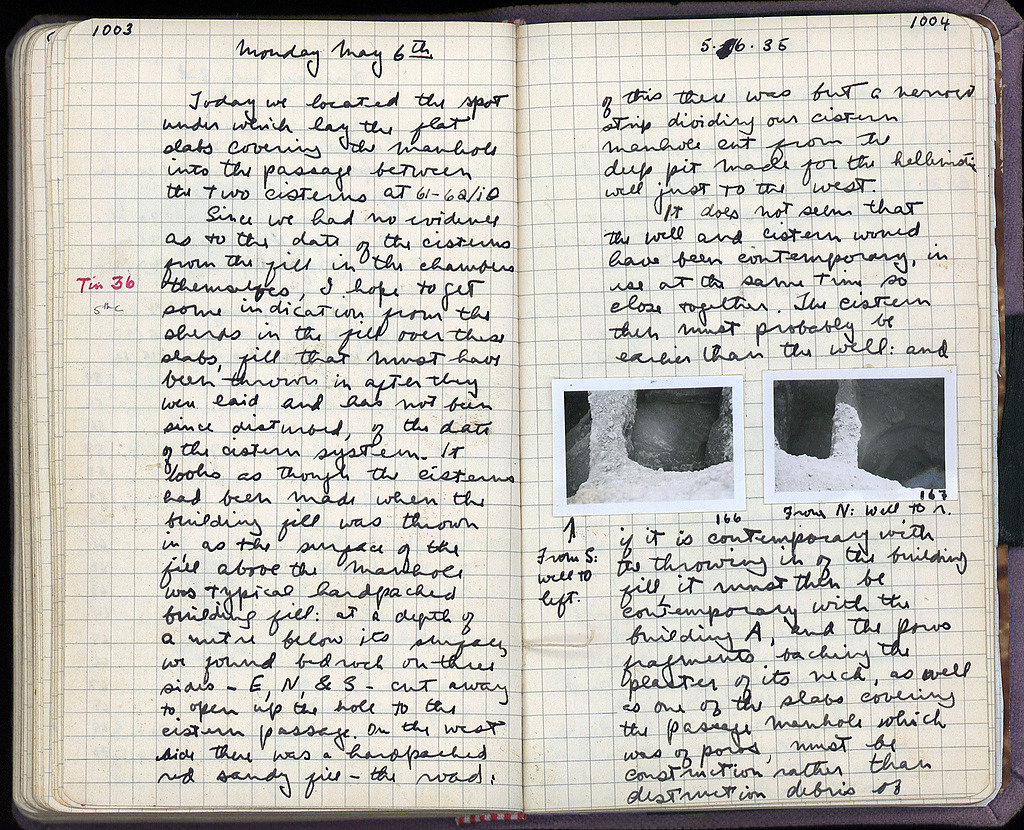 1003
Monday May 6th
Today we located the spot
under which lay the flat
slabs covering the manhole
into the passage between
the two cisterns at 61-62/ιθ
Since we had no evidence
as to the date of the cisterns
from the fill in the chambers
Tin 36
themselves, I hope to get
5th c
some indication from the
sherds in the fill over these
slabs, fill that must have
been thrown in after they
were laid and has not been
since disturbed, of the date
of the cistern system. It
looks as though the cisterns
had been made when the
building fill was thrown
in, as the surface of the
fill above the manhole
was typical hardpacked
building fill: at a depth of
a metre below its surface,
we found bedrock on three
sides - E, N, & S - cut away
to open up the hole to the
cistern passage. On the west
side there was a hardpacked
red sandy fill - the road:
1004
5. 6. 35
of this there was but a narrow
strip dividing our cistern
manhole cut from the
deep pit made for the hellenistic
well just to the west.
It does not seem that
the well and cistern would
have been contemporary, in
use at the same time so
close together. The cistern
then must probably be
earlier than the well: and
166
167
From S:
well to
left.
From N: Well to r.
if it is contemporary with
the throwing in of the building
fill, it must then be
contemporary with the
building A, and the poros
fragments backing the
plaster of its neck, as well
as one of the slabs covering
the passage manhole which
was of poros, must be
construction rather than
destruction debris of